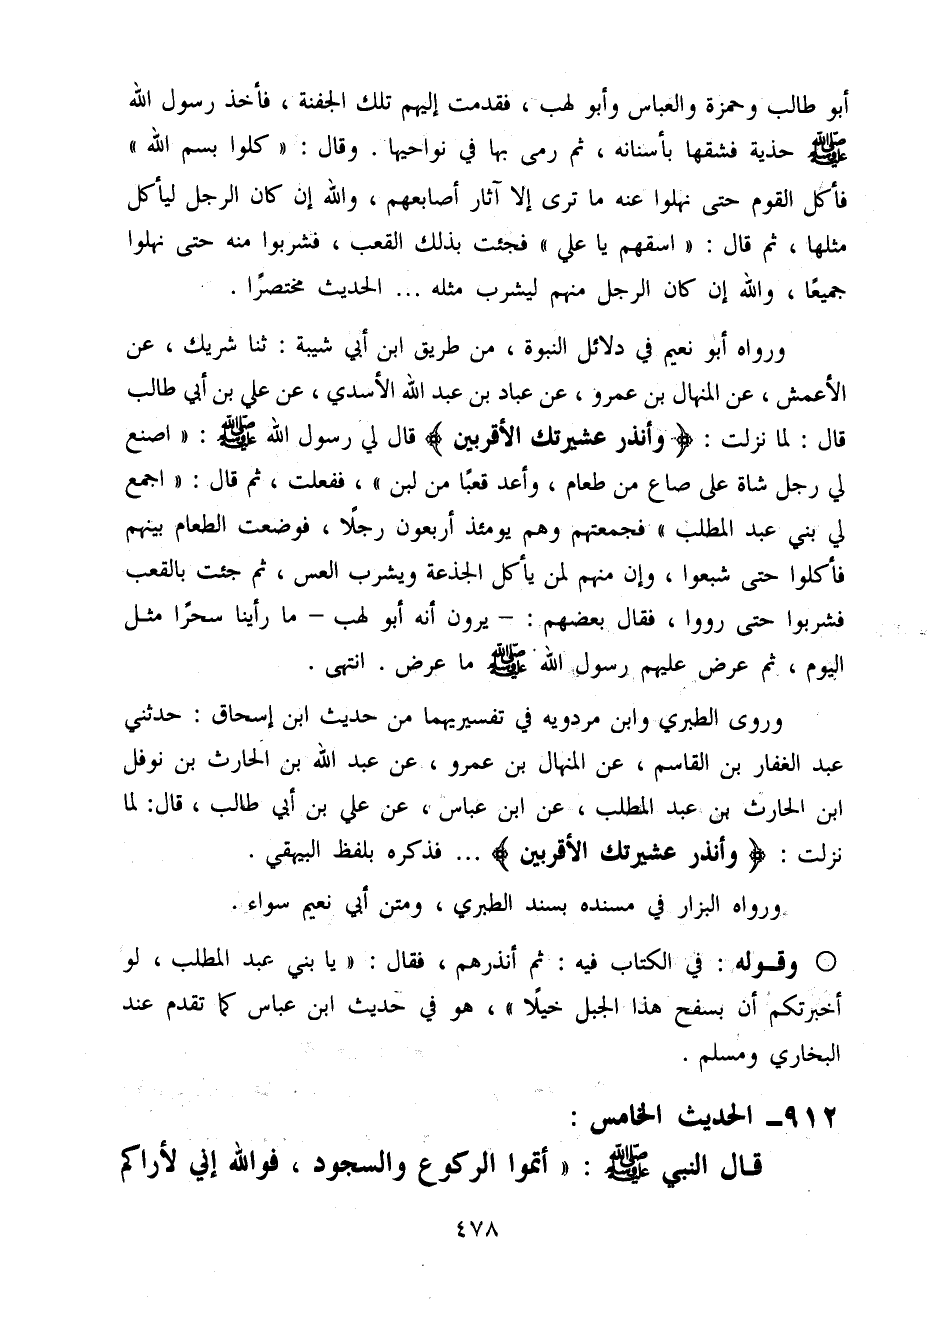 أبو طالب وحمزة والعباس وأبو لهب ، فقدمت إليهم تلك الجفنة ، فأخذ رسول الله
ﷺ حذية فشقها بأسنانه ، ثم رمى بها في نواحيها . وقال : « كلوا بسم الله »
فأكل القوم حتى نهلوا عنه ما ترى إلا آثار أصابعهم ، والله إن كان الرجل ليأكل
مثلها ، ثم قال : « اسقهم يا علي » فجئت بذلك القعب ، فشربوا منه حتى نهلوا
جميعًا ، والله إن كان الرجل منهم ليشرب مثله ... الحديث مختصرًا .
ورواه أبو نعيم في دلائل النبوة ، من طريق ابن أبي شيبة : ثنا شريك ، عن
الأعمش ، عن المنهال بن عمرو ، عن عباد بن عبد الله الأسدي ، عن علي بن أبي طالب
قال : لما نزلت : ﴿ وأنذر عشيرتك الأقربين ﴾ قال لي رسول الله ﷺ : « اصنع
لي رجل شاة على صاع من طعام ، وأعد قعبًا من لبن » ، ففعلت ، ثم قال : « اجمع
لي بني عبد المطلب » فجمعتهم وهم يومئذ أربعون رجلًا ، فوضعت الطعام بينهم
فأكلوا حتى شبعوا ، وإن منهم لمن يأكل الجذعة ويشرب العس ، ثم جئت بالقعب
فشربوا حتى رووا ، فقال بعضهم : – يرون أنه أبو لهب – ما رأينا سحرًا مثـل
اليوم ، ثم عرض عليهم رسول الله ﷺ ما عرض . انتهى .
وروى الطبري وابن مردويه في تفسيريهما من حديث ابن إسحاق : حدثني
عبد الغفار بن القاسم ، عن المنهال بن عمرو ، عن عبد الله بن الحارث بن نوفل
ابن الحارث بن عبد المطلب ، عن ابن عباس ، عن علي بن أبي طالب ، قال: لما
نزلت : ﴿ وأنذر عشيرتك الأقربين ﴾ ... فذكره بلفظ البيهقي .
ورواه البزار في مسنده بسند الطبري ، ومتن أبي نعيم سواء .
○ وقـوله : في الكتاب فيه : ثم أنذرهم ، فقال : « يا بني عبد المطلب ، لو
أخبرتكم أن بسفح هذا الجبل خيلًا » ، هو في حديث ابن عباس كما تقدم عند
البخاري ومسلم .
٩١٢ـ الحديث الخامس :
قـال النبي ﷺ : « أتموا الركوع والسجود ، فوالله إني لأراكم
٤٧٨